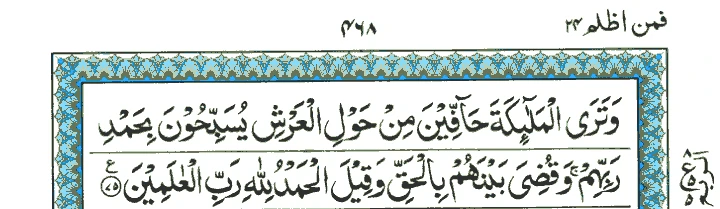 فمن اظلم ۲۴
۴۶۸
وَتَرَى الْمَلٰٓئِكَةَ حَآفِّيْنَ مِنْ حَوْلِ الْعَرْشِ يُسَبِّحُوْنَ بِحَمْدِ
رَبِّهِمْ ۚ وَقُضِىَ بَيْنَهُمْ بِالْحَقِّ وَقِيْلَ الْحَمْدُ لِلّٰهِ رَبِّ الْعٰلَمِيْنَ ۷۵ ع